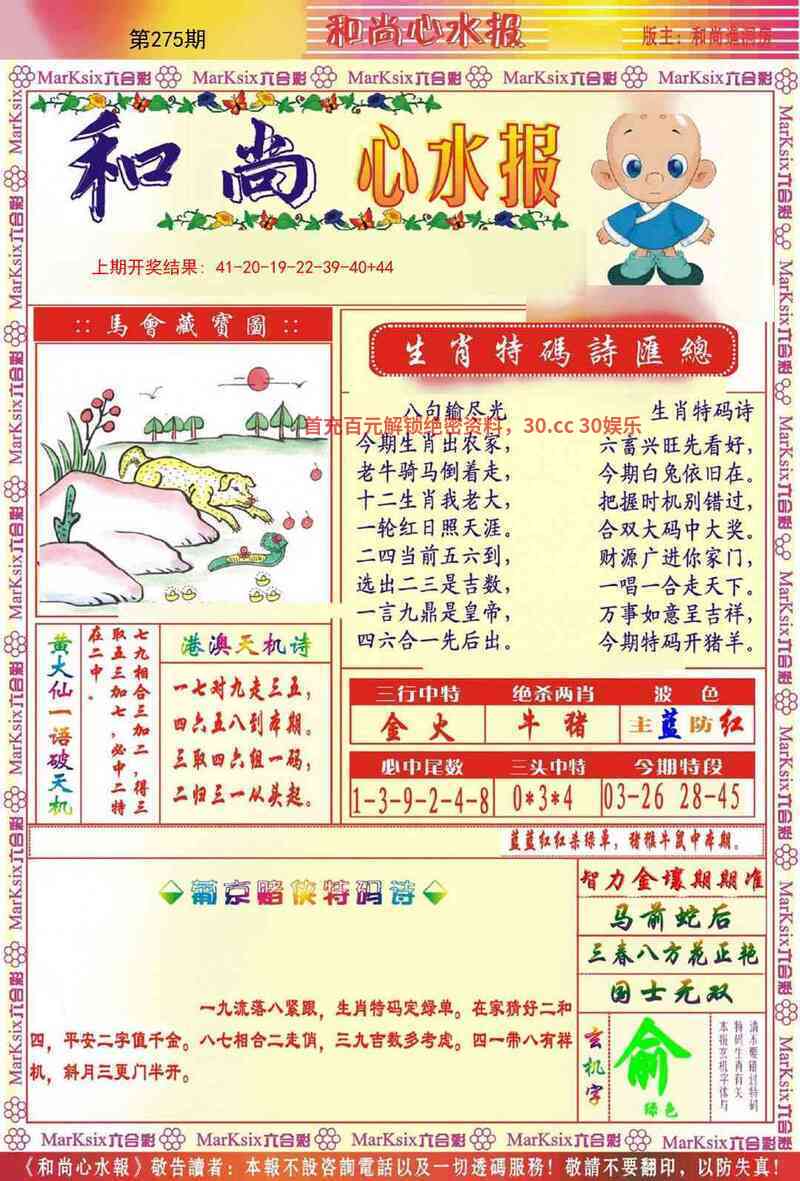 第275期
和尚心水报
版主：和尚進洞房
MarKsix六合彩 MarKsix六合彩 MarKsix六合彩 MarKsix六合彩 MarKsix六合彩
和尚心水报
上期开奖结果：41-20-19-22-39-40+44
:: 馬會藏寶圖 ::
生肖特碼詩匯總
八句输尽光
今期生肖出农家，
老牛骑马倒着走，
十二生肖我老大，
一轮红日照天涯。
二四当前五六到，
选出二三是吉数，
一言九鼎是皇帝，
四六合一先后出。
生肖特码诗
六畜兴旺先看好，
今期白兔依旧在。
把握时机别错过，
合双大码中大奖。
财源广进你家门，
一唱一合走天下。
万事如意呈吉祥，
今期特码开猪羊。
首充百元解锁绝密资料，30.cc 30娱乐
黄大仙一语破天机
七九相合三加二，得三
取五三加七，必中二特
在二中。
港澳天机诗
一七对九走三五，
四六五八到本期。
三取四六组一码，
二归三一从头起。
三行中特
金 火
绝杀两肖
牛 猪
波 色
主蓝防红
必中尾数
1-3-9-2-4-8
三头中特
0*3*4
今期特段
03-26 28-45
蓝蓝红红杀绿单，猪猴牛鼠中本期。
葡京赌侠特码诗
一九流落八紧跟，生肖特码定绿单。在家猜好二和
四，平安二字值千金。八七相合二走俏，三九吉数多考虑。四一带八有祥
机，斜月三更门半开。
智力金壤期期准
马前蛇后
三春八方花正艳
国士无双
玄机字
俞
绿色
请不要错过特码
特码生肖有关
本报玄机字体与
MarKsix六合彩 MarKsix六合彩 MarKsix六合彩 MarKsix六合彩 MarKsix六合彩
《和尚心水報》敬告讀者：本報不設咨詢電話以及一切透碼服務！敬請不要翻印，以防失真！